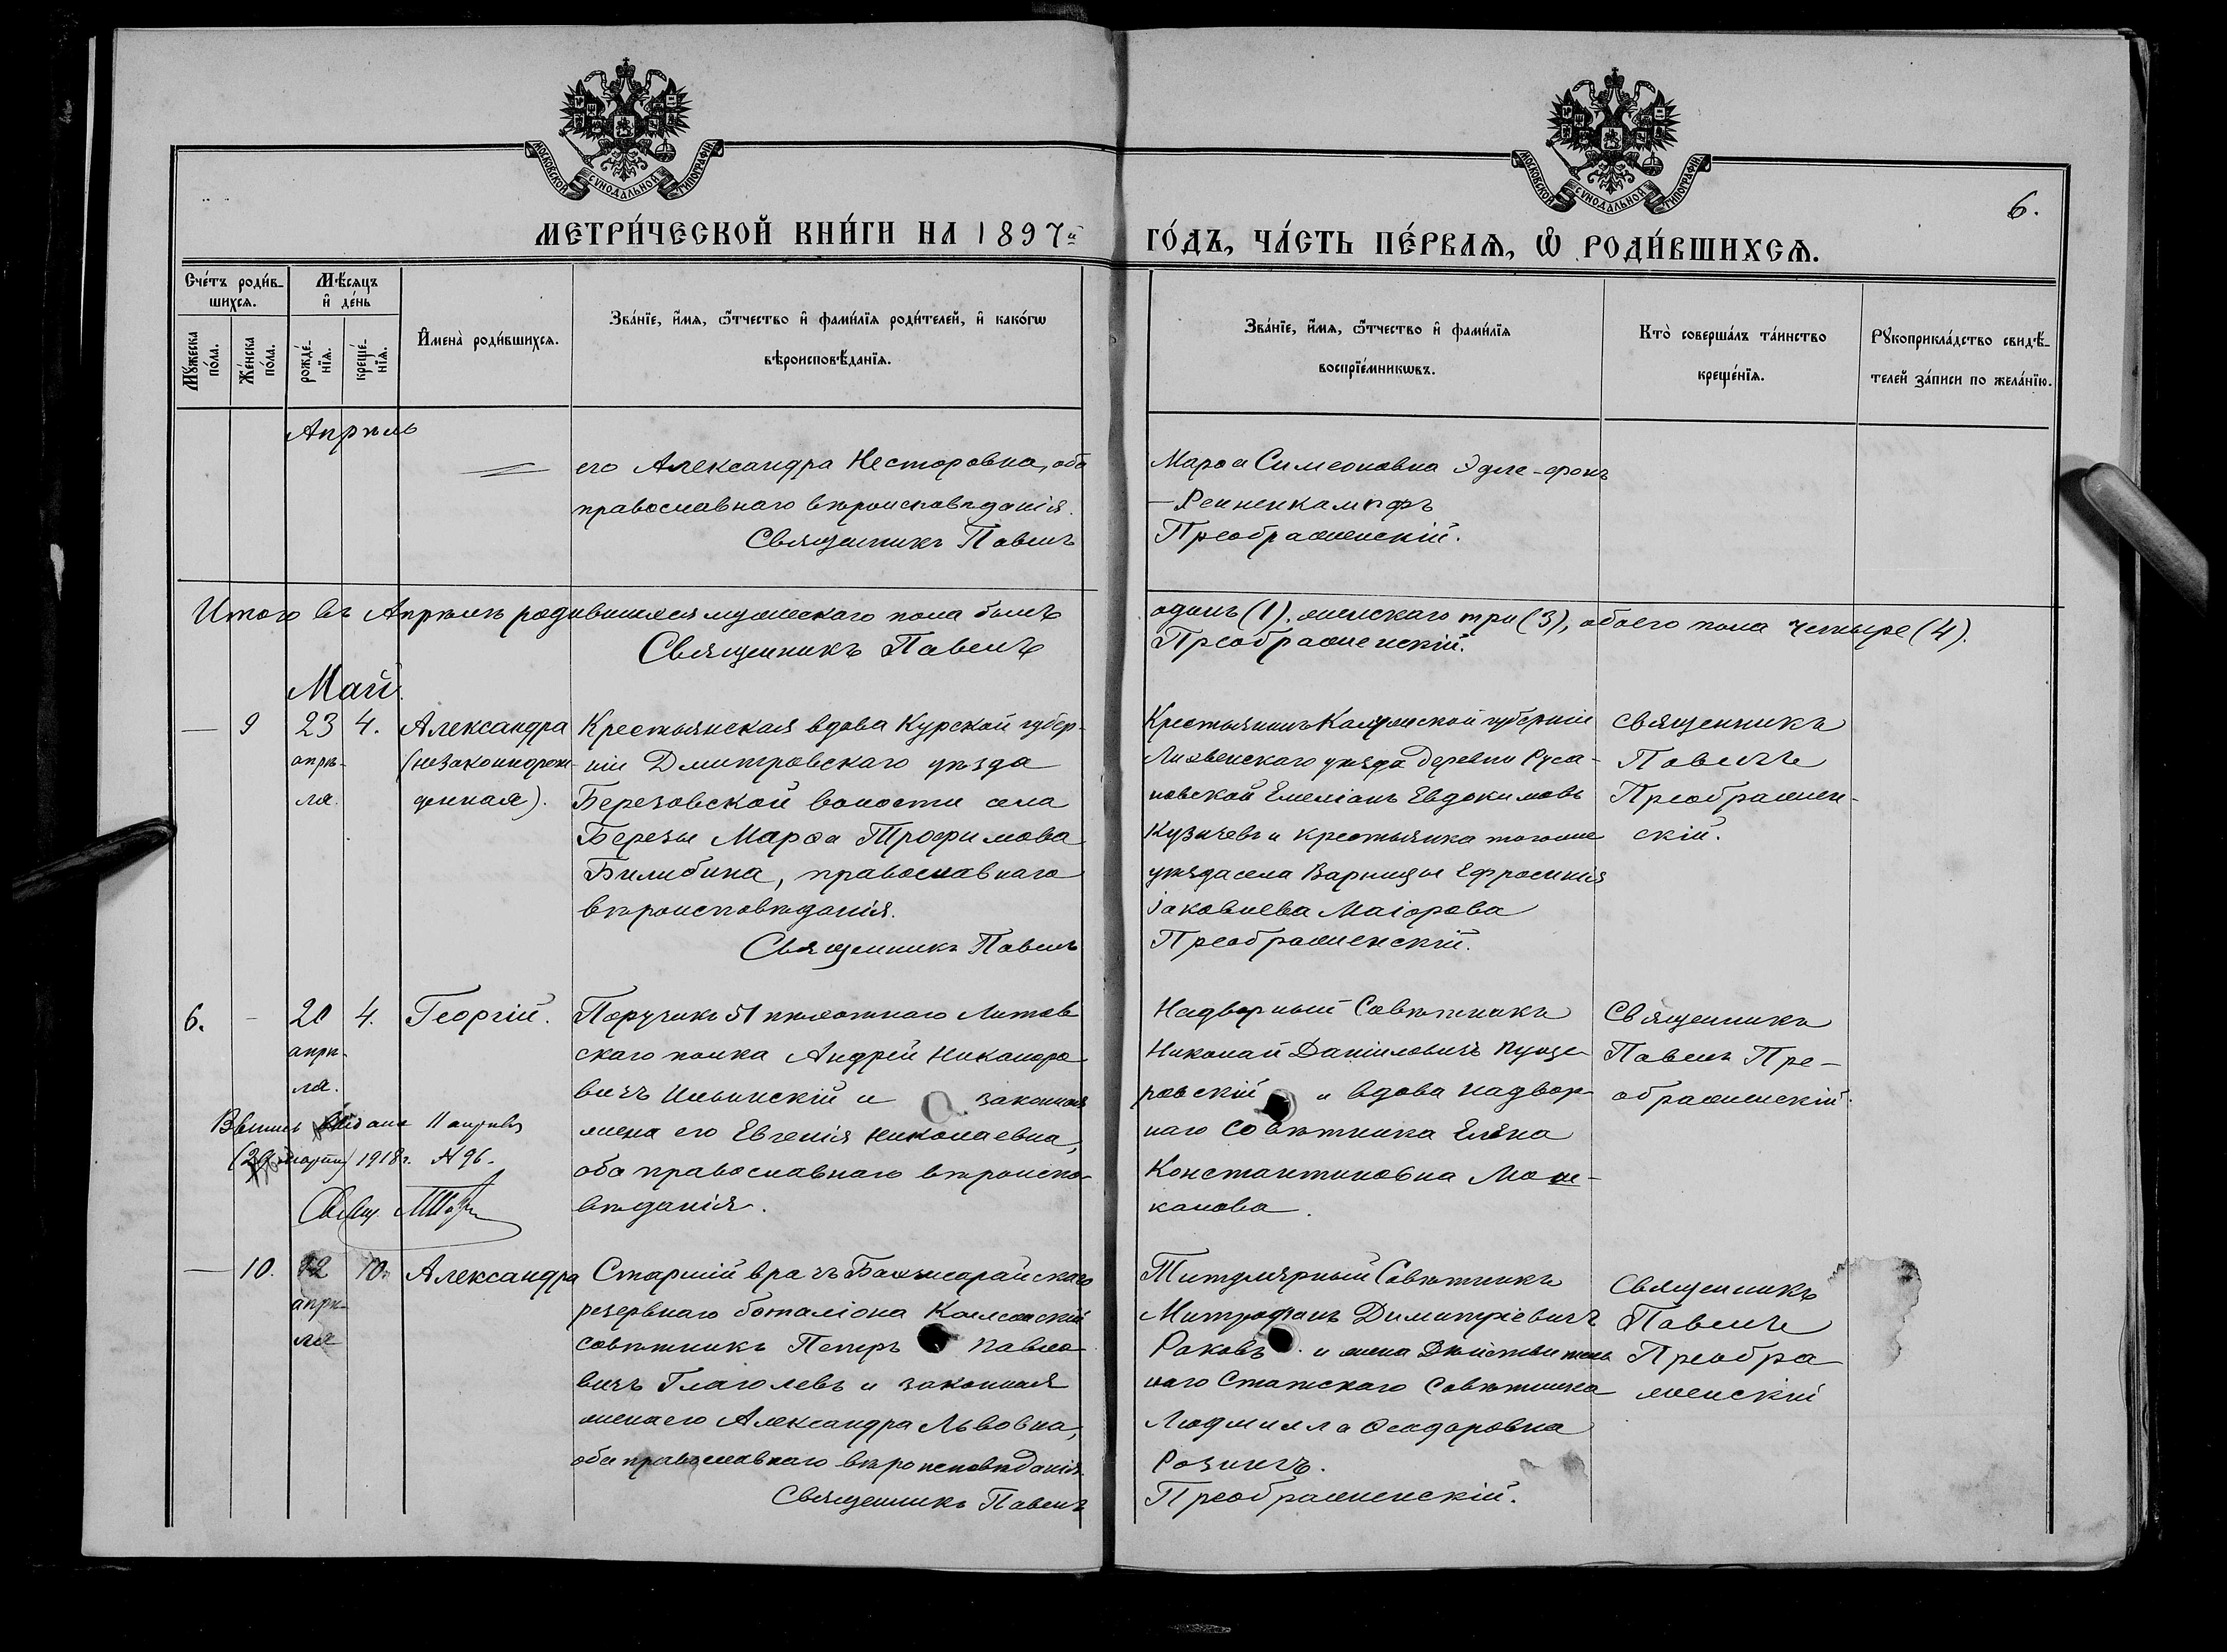 МОСКОВСКОЙ СУНОДАЛЬНОЙ ТИПОГРАФІИ
МОСКОВСКОЙ СУНОДАЛЬНОЙ ТИПОГРАФІИ
6.
МЕТРИ́ЧЕСКОЙ КНИ́ГИ НА 1897й
ГО́ДЪ, ЧА́СТЬ ПЕ́РВАѦ, Ѡ РОДИ́ВШИХСѦ.
Сче́тъ роди́в-
шихсѧ.
Мѣ́сѧцъ
и҆ де́нь
Мꙋжеска по́ла.
Же́нска по́ла.
рожде́-нїѧ.
креще́-нїѧ.
И҆мена̀ роди́вшихсѧ.
Зва́нїе, и҆́мѧ, ѻ҆́тчество и҆ фами́лїѧ роди́телей, и҆ како́гѡ
вѣроисповѣ́данїѧ.
Зва́нїе, и҆́мѧ, ѻ҆́тчество и҆ фами́лїѧ
воспрїе́мникѡвъ.
Кто̀ соверша́лъ та́инство
креще́нїѧ.
Рꙋкоприкла́дство свидѣ́-
телей за́писи по жела́нїю.
Апрѣль
его Александра Несторовна, оба
православнаго вѣроисповѣданія.
Священникъ Павелъ
Марѳа Симеоновна Эдле-фонъ
-Ренненкампфъ
Преображенскій.
Итого въ Апрѣлѣ родившихся мужескаго пола былъ
одинъ (1), женскаго три (3), обоего пола четыре (4).
Священникъ Павелъ
Преображенскій.
Май.
— 9 23 4.
апрѣ-
ля.
Александра
(незаконнорож-
денная).
Крестьянская вдова Курской губер-
ніи Дмитровскаго уѣзда
Березовской волости села
Березы Марѳа Трофимова
Билибина, православнаго
вѣроисповѣданія.
Священникъ Павелъ
Крестьянинъ Калужской губерніи
Лихвенскаго уѣзда деревни Руса-
новской Емеліанъ Евдокимовъ
Кузичевъ и крестьянка того же
уѣзда села Варницы Ефросинія
Іаковлева Маіорова
Преображенскій.
Священникъ
Павелъ
Преображен-
скій.
6. — 20 4.
апрѣ-
ля.
Георгій.
Выпись выдана 11 апрѣля
(29 марта) 1918 г. № 96.
Свящ.
Поручикъ 51 пѣхотнаго Литов
скаго полка Андрей Никаноро
вичъ Ильинскій и законная
жена его Евгенія Николаевна,
оба православнаго вѣроиспо-
вѣданія.
Надворный Совѣтникъ
Николай Даніиловичъ
ровскій и вдова надвор-
наго совѣтника Елена
Константиновна Мош-
канова.
Священникъ
Павелъ Пре-
ображенскій.
— 10. 12 10.
апрѣ-
ля
Александра
Старшій врачъ Бахчисарайскаго
резервнаго баталіона Коллежскій
совѣтникъ Петръ Павло
вичъ Глаголевъ и законная
жена его Александра Львовна,
оба православнаго вѣроисповѣданія.
Священникъ Павелъ
Титулярный Совѣтникъ
Митрофанъ Димитріевичъ
Раковъ и жена Дѣйствитель
наго Статскаго Совѣтника
Людмилла Ѳеодоровна
Розингъ.
Преображенскій.
Священникъ
Павелъ
Преобра-
женскій